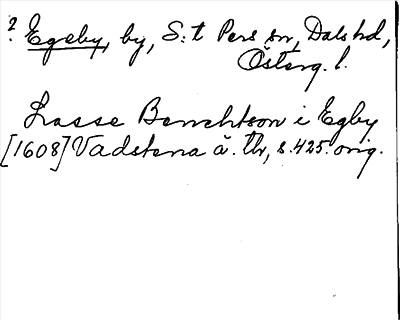 ? Egeby, by, S:t Pers sn, Dals hd,
Österg. l.
Lasse Benchtson i Egby
[1608] Vadstena ä. tb, s. 425. orig.